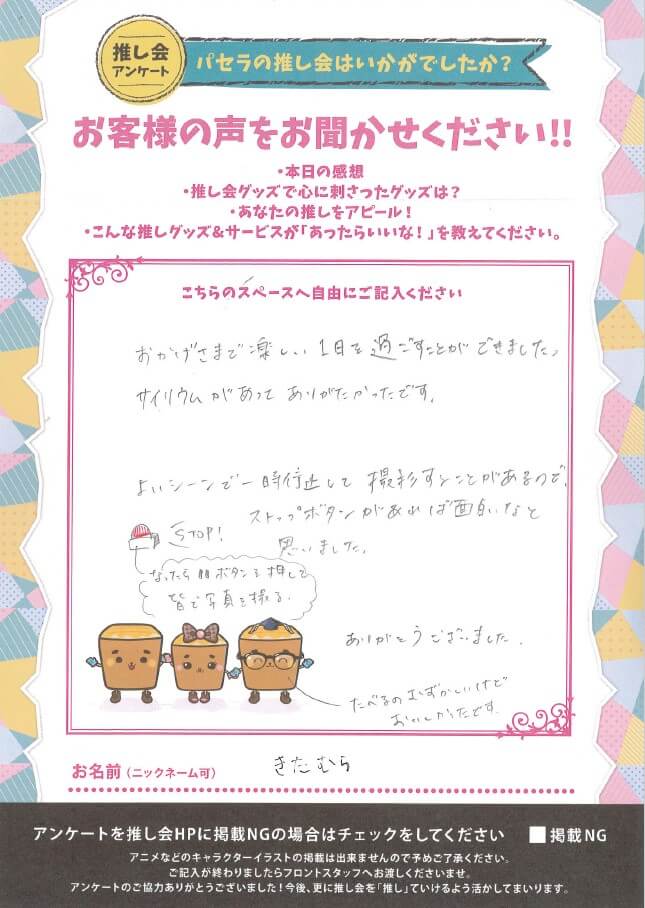 推し会
アンケート
パセラの推し会はいかがでしたか？
お客様の声をお聞かせください!!
・本日の感想
・推し会グッズで心に刺さったグッズは？
・あなたの推しをアピール！
・こんな推しグッズ&サービスが「あったらいいな！」を教えてください。
こちらのスペースへ自由にご記入ください
おかげさまで楽しい1日を過ごすことができました。
サイリウムがあって ありがたかったです。
よいシーンで一時停止して 撮影することがあるので、
ストップボタンがあれば面白いなと
思いました。
STOP!
なったら⏸ボタンを押して
皆で写真を撮る。
ありがとうございました。
たべるのむずかしいけど
おいしかったです。
お名前（ニックネーム可）
きたむら
アンケートを推し会HPに掲載NGの場合はチェックをしてください ■掲載NG
アニメなどのキャラクターイラストの掲載は出来ませんので予めご了承ください。
ご記入が終わりましたらフロントスタッフへお渡しくださいませ。
アンケートのご協力ありがとうございました！今後、更に推し会を「推し」ていけるよう活かしてまいります。